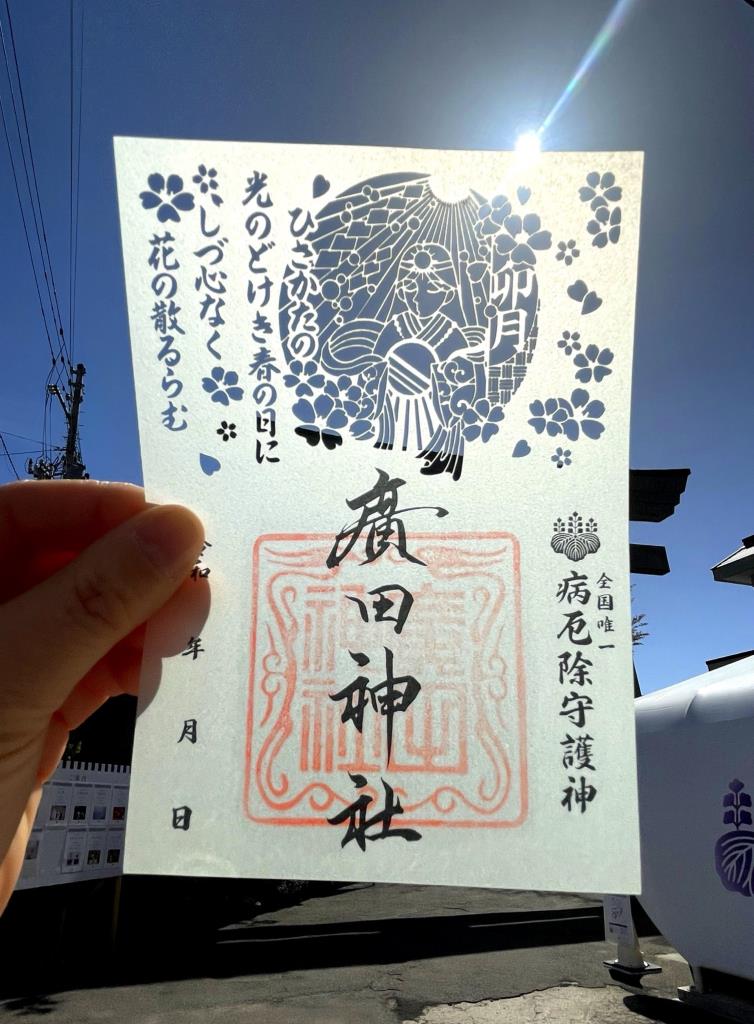 卯月
ひさかたの
光のどけき春の日に
しづ心なく
花の散るらむ
全国唯一
病厄除守護神
廣田神社
令和 年 月 日